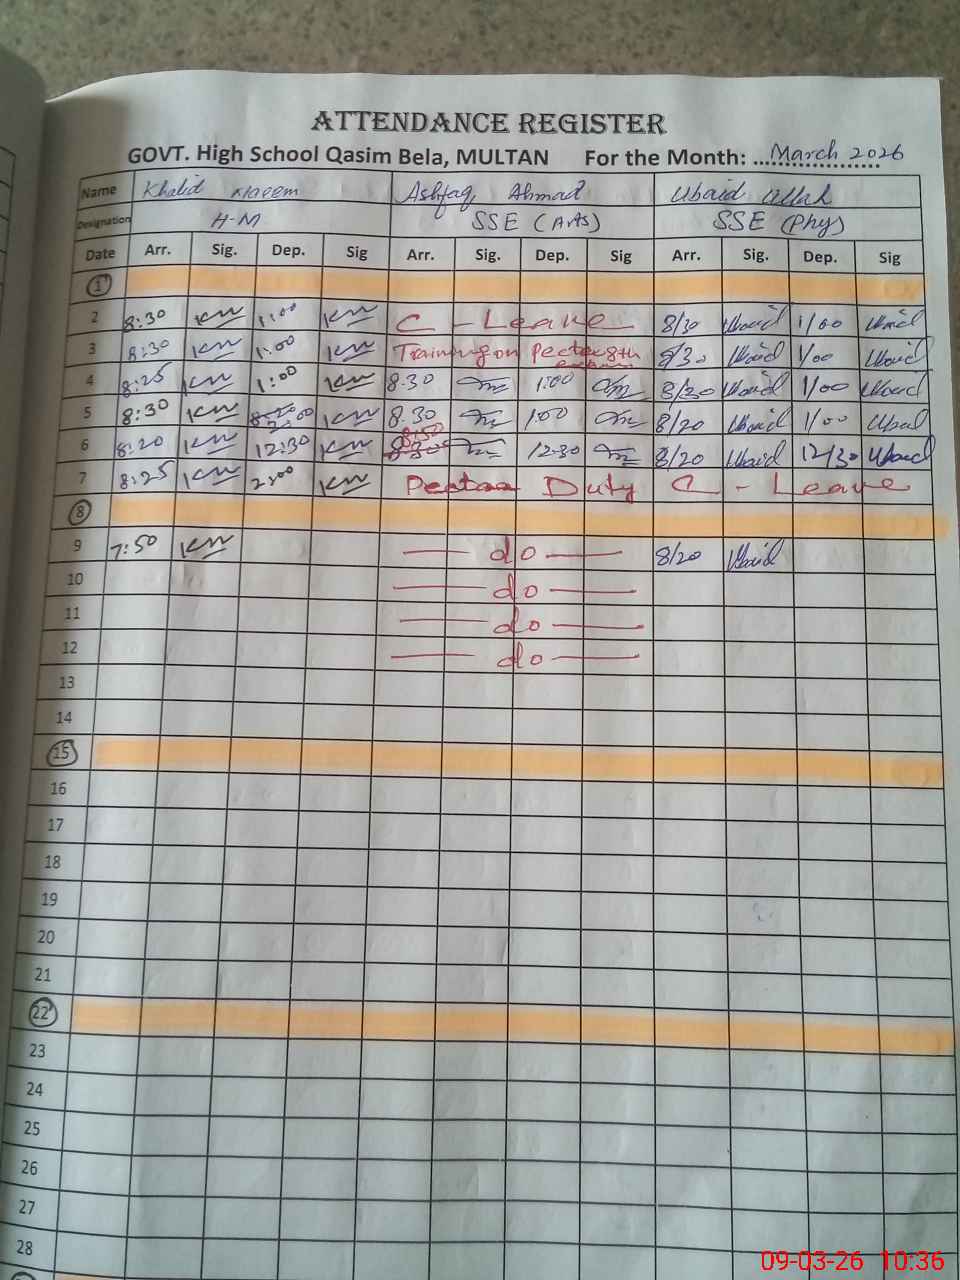 ATTENDANCE REGISTER
GOVT. High School Qasim Bela, MULTAN For the Month: March 2026
Name Khalid Naeem Ashfaq Ahmad Ubaid Ullah
Designation H-M SSE (Arts) SSE (Phy)
Date Arr. Sig. Dep. Sig Arr. Sig. Dep. Sig Arr. Sig. Dep. Sig
1
2 8:30 KN 1:00 KN C - Leave 8/30 Ubaid 1/00 Ubaid
3 8:30 KN 1:00 KN Training on 8th 8/30 Ubaid 1/00 Ubaid
4 8:25 KN 1:00 KN 8.30 1:00 8/30 Ubaid 1/00 Ubaid
5 8:30 KN KN 8.30 1:00 8/20 Ubaid 1/00 Ubaid
6 8:20 KN 12:30 KN 12:30 8/20 Ubaid 12/30 Ubaid
7 8:25 KN 2:00 KN Duty C - Leave
8
9 7:50 KN do 8/20 Ubaid
10 do
11 do
12 do
13
14
15
16
17
18
19
20
21
22
23
24
25
26
27
28
09-03-26 10:36